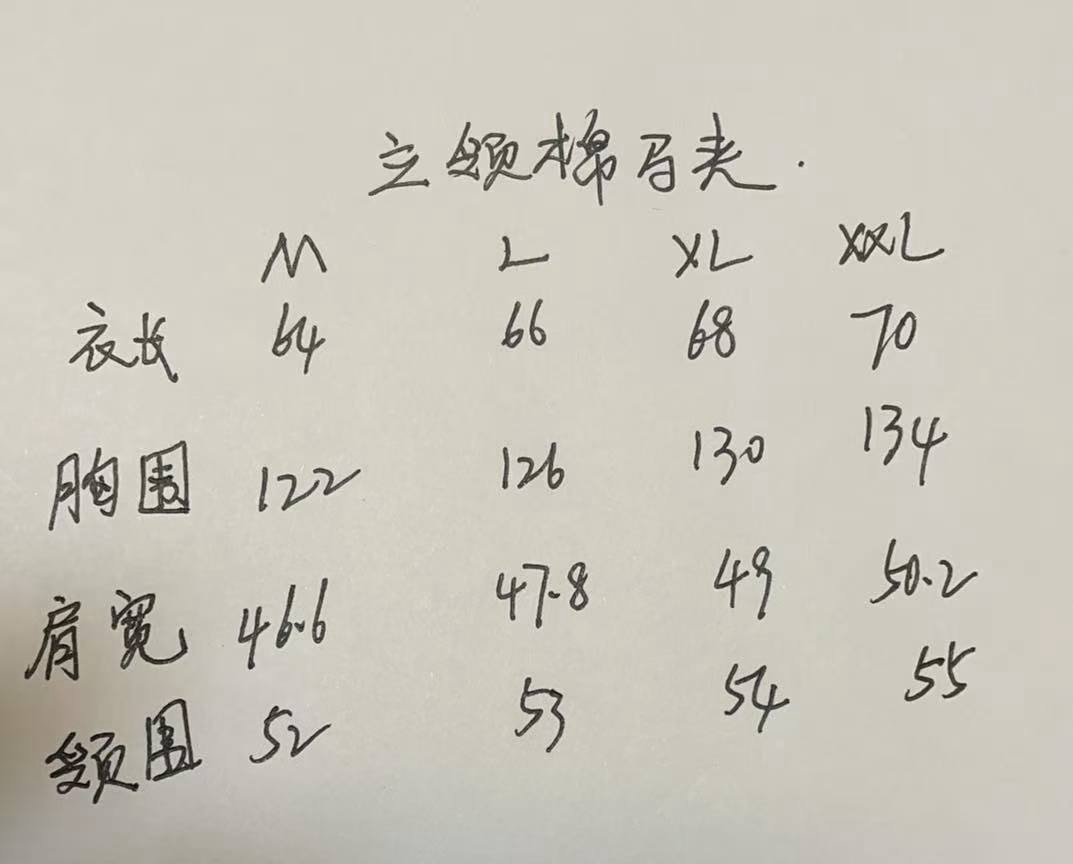 立领棉马夹.
M L XL XXL
衣长 64 66 68 70
胸围 122 126 130 134
肩宽 46.6 47.8 49 50.2
领围 52 53 54 55